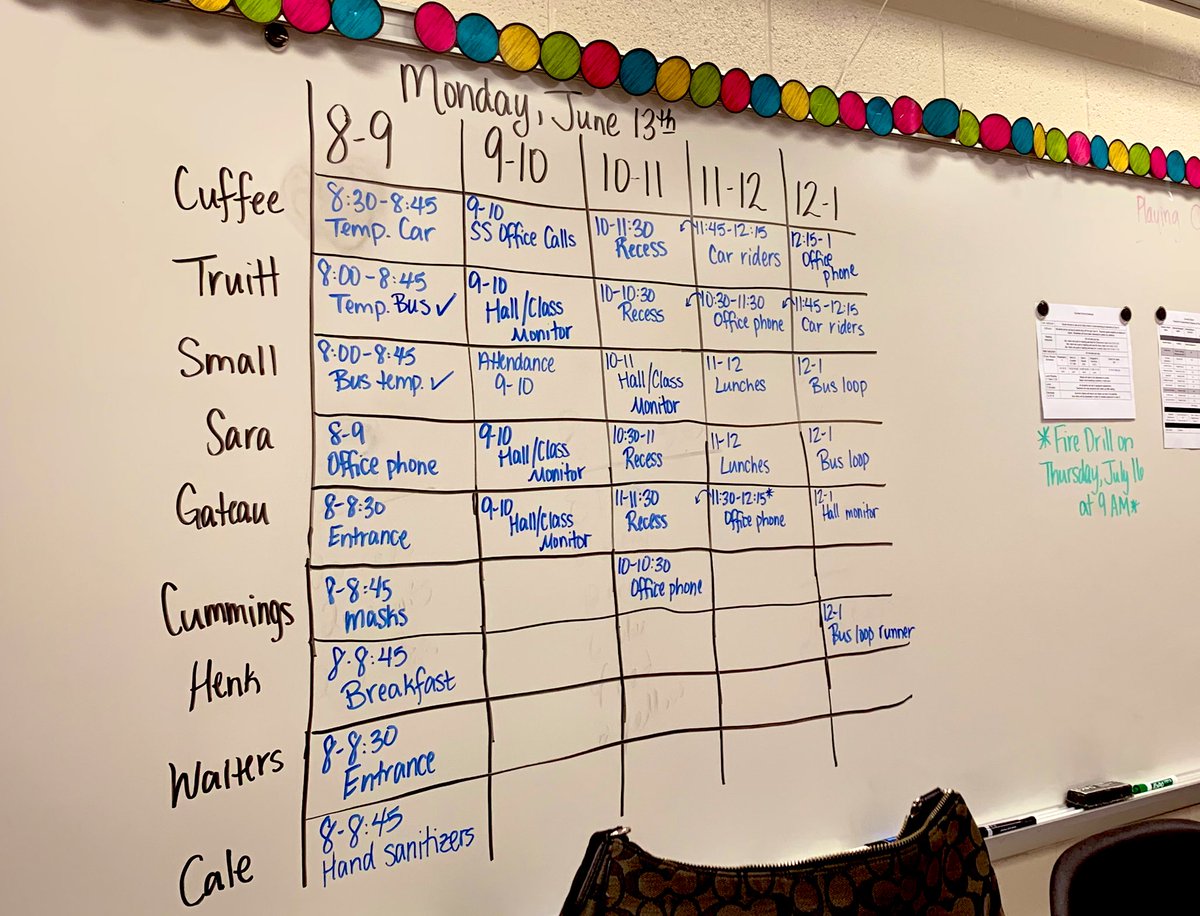 Monday, June 13th
8-9 9-10 10-11 11-12 12-1
Cuffee
8:30-8:45
Temp. Car
9-10
SS Office Calls
10-11:30
Recess
11:45-12:15
Car riders
12:15-1
Office
phone
Truitt
8:00-8:45
Temp. Bus ✓
9-10
Hall/Class
Monitor
10-10:30
Recess
10:30-11:30
Office phone
11:45-12:15
Car riders
Small
8:00-8:45
Bus temp. ✓
Attendance
9-10
10-11
Hall/Class
Monitor
11-12
Lunches
12-1
Bus loop
Sara
8-9
Office phone
9-10
Hall/Class
Monitor
10:30-11
Recess
11-12
Lunches
12-1
Bus loop
Gateau
8-8:30
Entrance
9-10
Hall/Class
Monitor
11-11:30
Recess
11:30-12:15*
Office phone
12-1
Hall monitor
Cummings
8-8:45
masks
10-10:30
Office phone
Henk
8-8:45
Breakfast
12-1
Bus loop runner
Walters
8-8:30
Entrance
Cale
8-8:45
Hand sanitizers
Playing
*Fire Drill on
Thursday, July 16
at 9 AM*